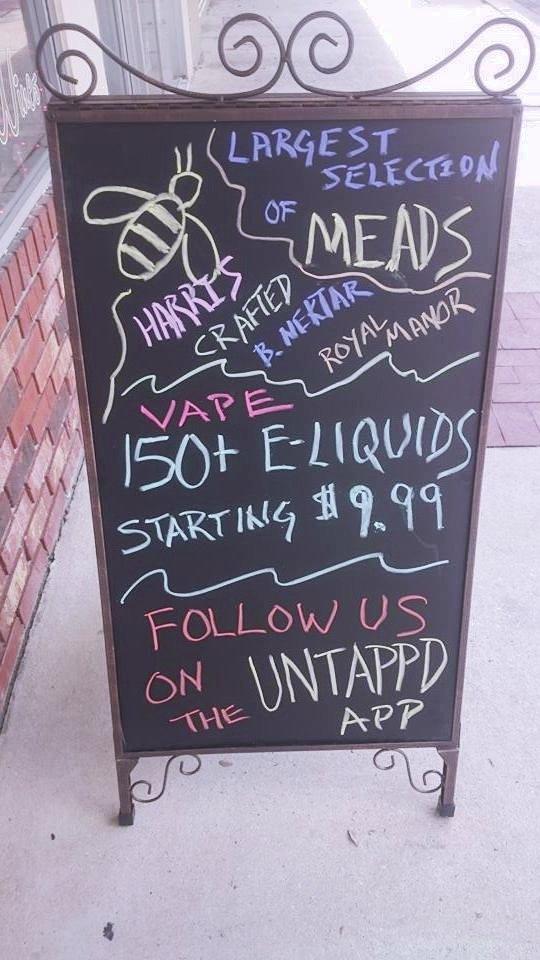 Wines
LARGEST
SELECTION
OF MEADS
HARRIS
CRAFTED
B. NEKTAR
ROYAL MANOR
VAPE
150+ E-LIQUIDS
STARTING $9.99
FOLLOW US
ON UNTAPPD
THE APP